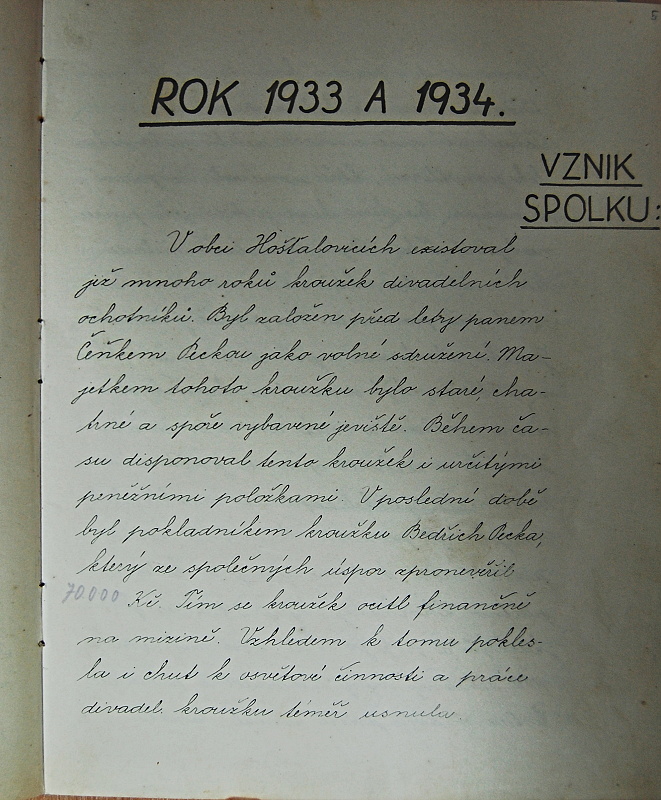 5
ROK 1933 A 1934.
VZNIK
SPOLKU:
V obci Hošťalovicích existoval
již mnoho roků kroužek divadelních
ochotníků. Byl založen před lety panem
Čeňkem Peckou jako volné sdružení. Ma-
jetkem tohoto kroužku bylo staré, cha-
trné a spoře vybavené jeviště. Během ča-
su disponoval tento kroužek i určitými
peněžními položkami. V poslední době
byl pokladníkem kroužku Bedřich Pecka,
který ze společných úspor zpronevěřil
70000 Kč. Tím se kroužek ocitl finančně
na mizině. Vzhledem k tomu pokles-
la i chut k osvětové činnosti a práce
divadel. kroužku téměř usnula.